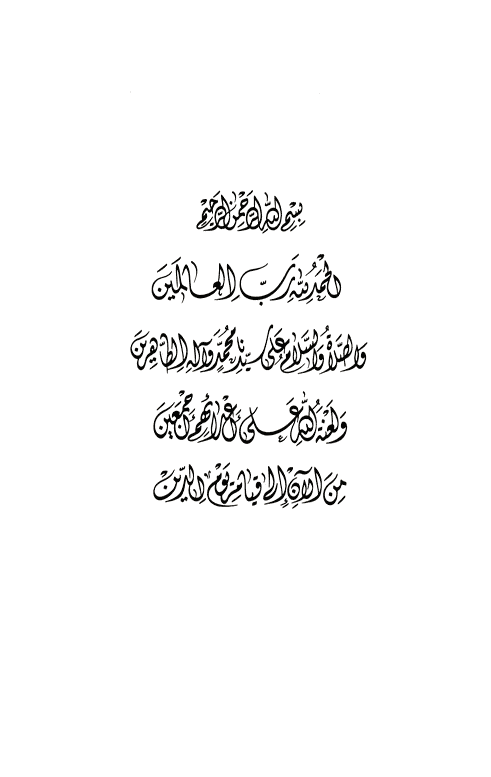 بِسْمِ اللهِ الرَّحْمنِ الرَّحِيْمِ
الحَمْدُ لِلّهِ رَبِّ العالَمِينَ
وَالصَّلَاةُ وَالسَّلَامُ عَلَى سَيِّدِنَا مُحَمَّدٍ وَآلِهِ الطَّاهِرِينَ
وَلَعْنَةُ اللهِ عَلَى أَعْدائِهِمْ أَجْمَعِينَ
مِنَ الآنِ إِلى قِيامِ يَوْمِ الدِّينِ